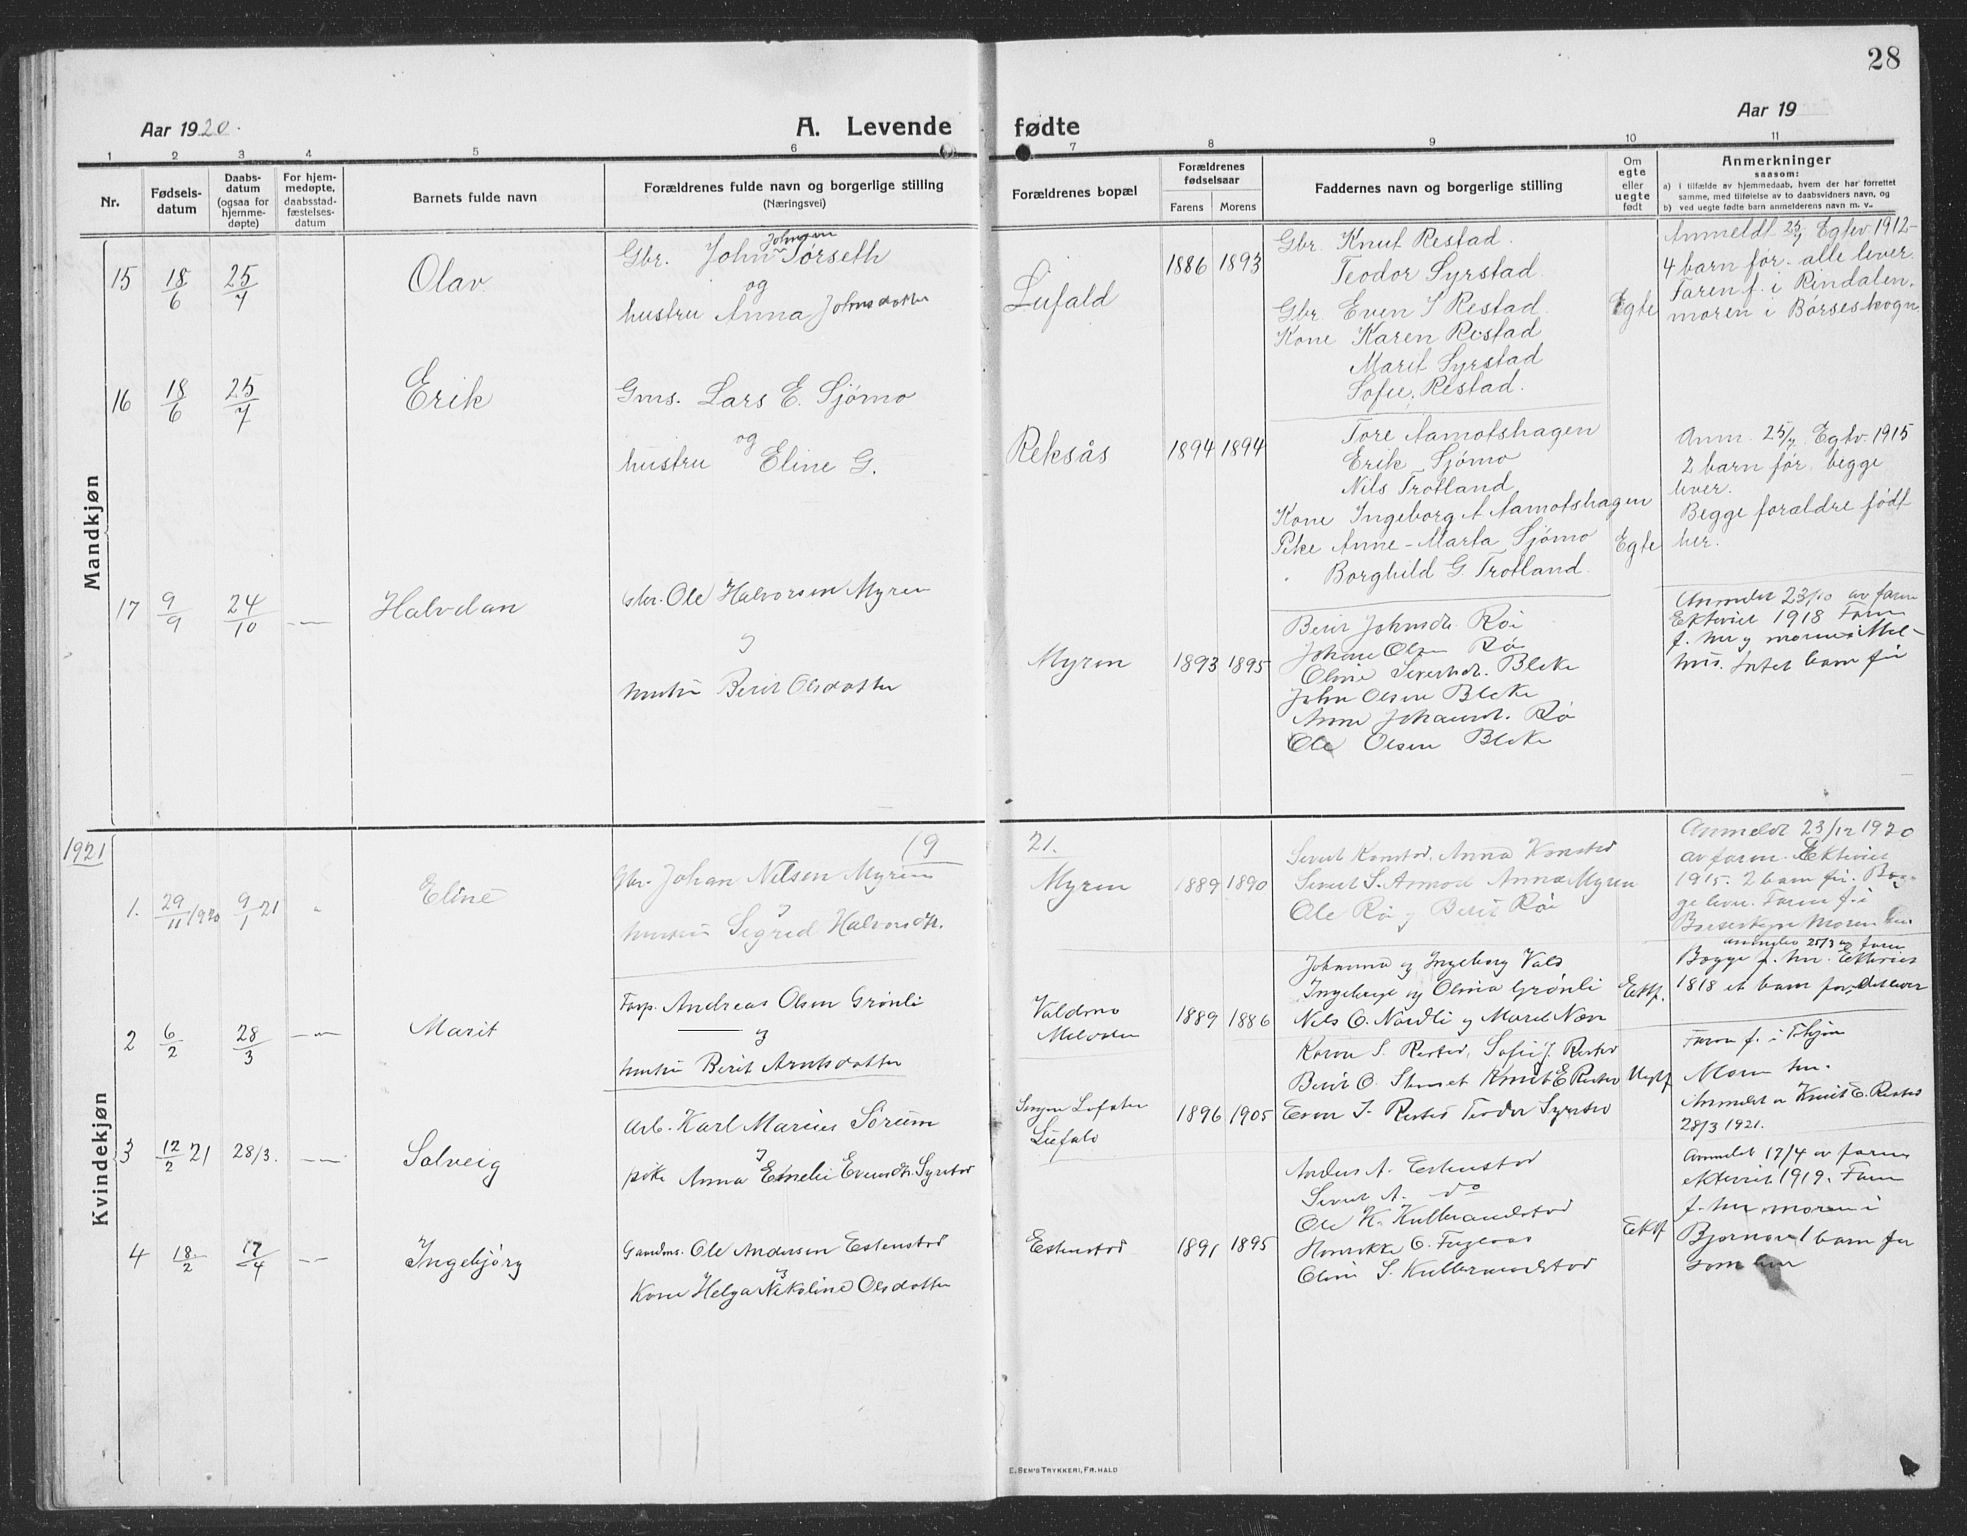 28
Aar 1920.
A. Levende fødte
Aar 19
1 2 3 4 5 6 7 8 9 10 11
Nr.
Fødsels-
datum
Daabs-
datum
(ogsaa for
hjemme-
døpte)
For hjem-
medøpte,
daabsstad-
fæstelses-
datum
Barnets fulde navn
Forældrenes fulde navn og borgerlige stilling
(Næringsvei)
Forældrenes bopæl
Forældrenes
fødselsaar
Farens Morens
Faddernes navn og borgerlige stilling
Om
egte
eller
uegte
født
Anmerkninger
saasom:
a) i tilfælde av hjemmedaab, hvem der har forrettet
samme, med tilføielse av to daabsvidners navn, og
b) ved uegte fødte barn anmelderens navn m. v..
Mandkjøn
15 18/6 25/7 Olav
Gbr. John Johnsen Tørseth
og
hustru Anna Johnsdatter
Lufald 1886 1893
Gbr. Knut Restad.
Teodor Syrstad.
Gbr. Even S Restad.
Kone Karen Restad
Marit Syrstad
Sofie Restad.
Egte
Anmeldt 25/7 Egtv. 1912-
4 barn før. alle lever.
Faren f. i Rindalen.
moren i Børseskogn
16 18/6 25/7 Erik
Gms. Lars E. Sjømo
og
hustru Eline G.
Reksås 1894 1894
Tore Aamotshagen
Erik Sjømo
Nils Trotland
Kone Ingeborg A Aamotshagen
Pike Anne-Marta Sjømo
Borghild G Trotland.
Egte
Anm. 25/7. Egtv. 1915
2 barn før, begge
lever.
Begge forældre født
her.
17 9/9 24/10 -"- Halvdan
Gbr. Ole Halvorsen Myren
og
hustru Berit Olsdatter
Myren 1893 1895
Berit Johnsdt. Røi
Johan Olsen Røi
Oline Sivertsdt. Bleke
John Olsen Bleke
Anne Johansdt. Rø
Ole Olsen Bleke
Anmeldt 23/10 av faren
Ektviet 1918 Faren
f. her og moren i Mel-
hus. Intet barn før
1921
19 21.
Kvindekjøn
1. 29/11 1920 9/1 21 " Eline
Gbr. Johan Nilsen Myren
og
hustru Sigrid Halvorsdtr.
Myren 1889 1890
Sivert Krustad, Anna Krustad
Sivert S. Aamot Anna Myren
Ole Rø og Berit Røi
Anmeldt 23/12 1920
av faren. Ektviet
1915. 2 barn før. Beg-
ge lever. Faren f. i
Børseskogn Moren her
2 6/2 28/3 -"- Marit
Andreas Olsen Grønli
og
hustru Berit Arntsdatter
1889 1886
Johanna og Ingeborg Vals
Ingeborg og Olina Grønli
Nils O. Nordli og Marit
Ekf.
anmeldt 25/3 av faren
Begge f. her. Ektviet
1918 et barn før, det lever
3 12/2 21 28/3. -"- Solveig
Arb. Karl Marius Sørum
og
pike Anna Emelie Evensdtr. Syrstad
Lufald
1896 1905
Karen S. Restad, Sofie J. Restad
Berit O. Knut E Restad
Even S. Restad Teodor Syrstad
Uekf
Faren f. i
Moren her.
Anmeldt av Knut E. Restad
28/3 1921.
4 18/2 17/4 -"- Ingebjørg
Gaardm. Ole Andersen Estenstad
og
Kone Helga Nikoline Olsdatter
Estenstad 1891 1895
Anders A. Estenstad
Sivert A. do
Ole K. Kulbrandstad
Henrikke O.
Oline S. Kulbrandstad
Ekf
Anmeldt 17/4 av faren
ektviet 1919. Faren
f. her moren i
Bjørnør 1 barn før
som lever
E. SEM'S TRYKKERI, FR.HALD